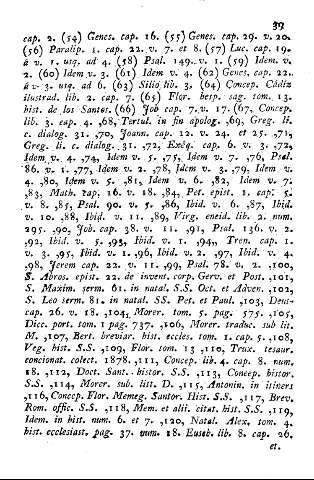 39
cap. 2. (54) Genes. cap. 16. (55) Genes. cap. 29. v. 20.
(56) Paralip. 1. cap. 22. v. 7. et 8. (57) Luc. cap. 19.
à v. 1. usq. ad 4. (58) Psal. 149. v. 1. (59) Idem. v.
2. (60) Idem v. 3. (61) Idem v. 4. (62) Genes. cap. 22.
à v. 3. usq. ad 6. (63) Silió lib. 3. (64) Concep. Cádiz
ilustrad. lib. 2. cap. 7. (65) Flor. hesp. sag. tom. 13.
hist. de los Santos. (66) Job cap. 7. v. 17. (67, Concep.
lib. 3. eap. 4. ,68, Tertul. in fin apolog. ,69, Greg. li.
c. dialog. 31. ,70, Joann. cap. 12. v. 24. et 25. ,71,
Greg. li. c. dialog. 31. ,72, Exêq. cap. 6. v. 3. ,72,
Idem v. 4. ,74, Idem v. 5. ,75, Idem v. 7. ,76, Psal.
86. v. 1. ,77, Idem v. 2. ,78, Idem v. 3. ,79, Idem v.
4. ,80, Idem v. 5. ,81, Idem v. 6. ,82, Idem v. 7.
,83, Math. cap. 16. v. 18. ,84, Pet. epist. 1. cap. 5.
v. 8. ,85, Psal. 90. v. 5. ,86, Ibid. v. 6. ,87, Ibid.
v. 10. ,88, Ibid. v. 11. ,89, Virg. eneid. lib. 2. num.
295. ,90, Job. cap. 38. v. 11. ,91, Psal. 136. v. 2.
,92, Ibid. v. 5. ,93, Ibid. v. 1. ,94,, Tren. cap. 1.
v. 3. ,95, Ibid. v. 1. ,96, Ibid. v. 2. ,97, Ibid. v. 4.
,98, Jerem cap. 22. v. 11. ,99, Psal. 78. v. 2. ,100,
S. Abros. epist. 22. de invent. corp. Gerv. et Post. ,101,
S. Maxim. serm. 61. in natal. S.S. Oct. et Adven. ,102,
S. Leo serm. 81. in natal. SS. Pet. et Paul. ,103, Deut-
cap. 26. v. 18. ,104, Morer. tom. 5. pag. 575. ,105,
Dicc. port. tom. 1 pag. 737. ,106, Morer. traduc. sub lit.
M. ,107, Bert. breviar. hist. eccles. tom. 1. cap. 5. ,108,
Veg. hist. S.S. ,109, Flor. tom. 13 ,110, Trux. tesaur.
concionat. colect. 1878. ,111, Concep. lib. 4. cap. 8. num.
18. ,112, Doct. Sant. histor. S.S. ,113, Concep. histor.
S.S. ,114, Morer. sub. litt. D. ,115, Antonin. in itiners
,116, Concep. Flor. Memeg. Santor. Hist. S.S. ,117, Brev.
Rom. offic. S.S. ,118, Mem. et alii. citat. hist. S.S. ,119,
Idem. in hist. num. 6. et 7. ,120, Natal. Alex. tom. 4.
hist. ecclesiast. pag. 37. num. 18. Euseb. lib. 8. cap. 26.
et.